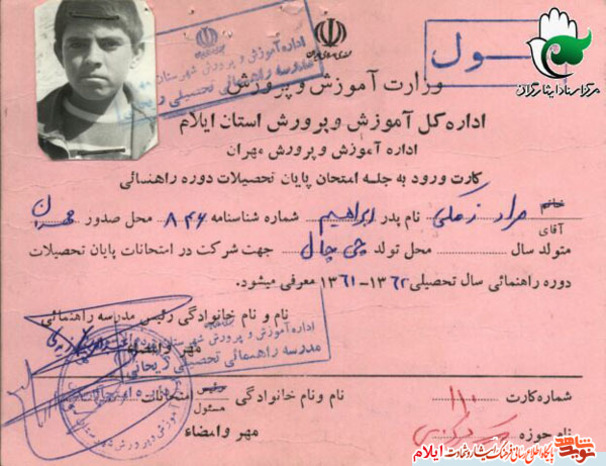 جمهوری اسلامی ایران
ـول
مرکز اسناد ایثارگران
اداره آموزش و پرورش شهرستان
مدرسه راهنمائی تحصیلی
وزارت آموزش و پرورش
اداره کل آموزش و پرورش استان ایلام
اداره آموزش و پرورش مهران
کارت ورود به جلسه امتحان پایان تحصیلات دوره راهنمائی
خانم
آقای مراد زنگی نام پدر ابراهیم شماره شناسنامه ۸۴۶ محل صدور مهران
متولد سال محل تولد جهت شرکت در امتحانات پایان تحصیلات
دوره راهنمائی سال تحصیلی ۱۳۶۲-۱۳۶۱ معرفی میشود.
نام و نام خانوادگی رئیس مدرسه راهنمائی
مهر وامضاء
اداره آموزش و پرورش شهرستان
مدرسه راهنمائی تحصیلی ریحانی
شماره کارت ۱۱۰
نام و نام خانوادگی رئیس مسئول امتحانات
نام حوزه
مهر وامضاء
نوید شاهد
پایگاه اطلاع رسانی فرهنگ ایثار و شهادت ایلام